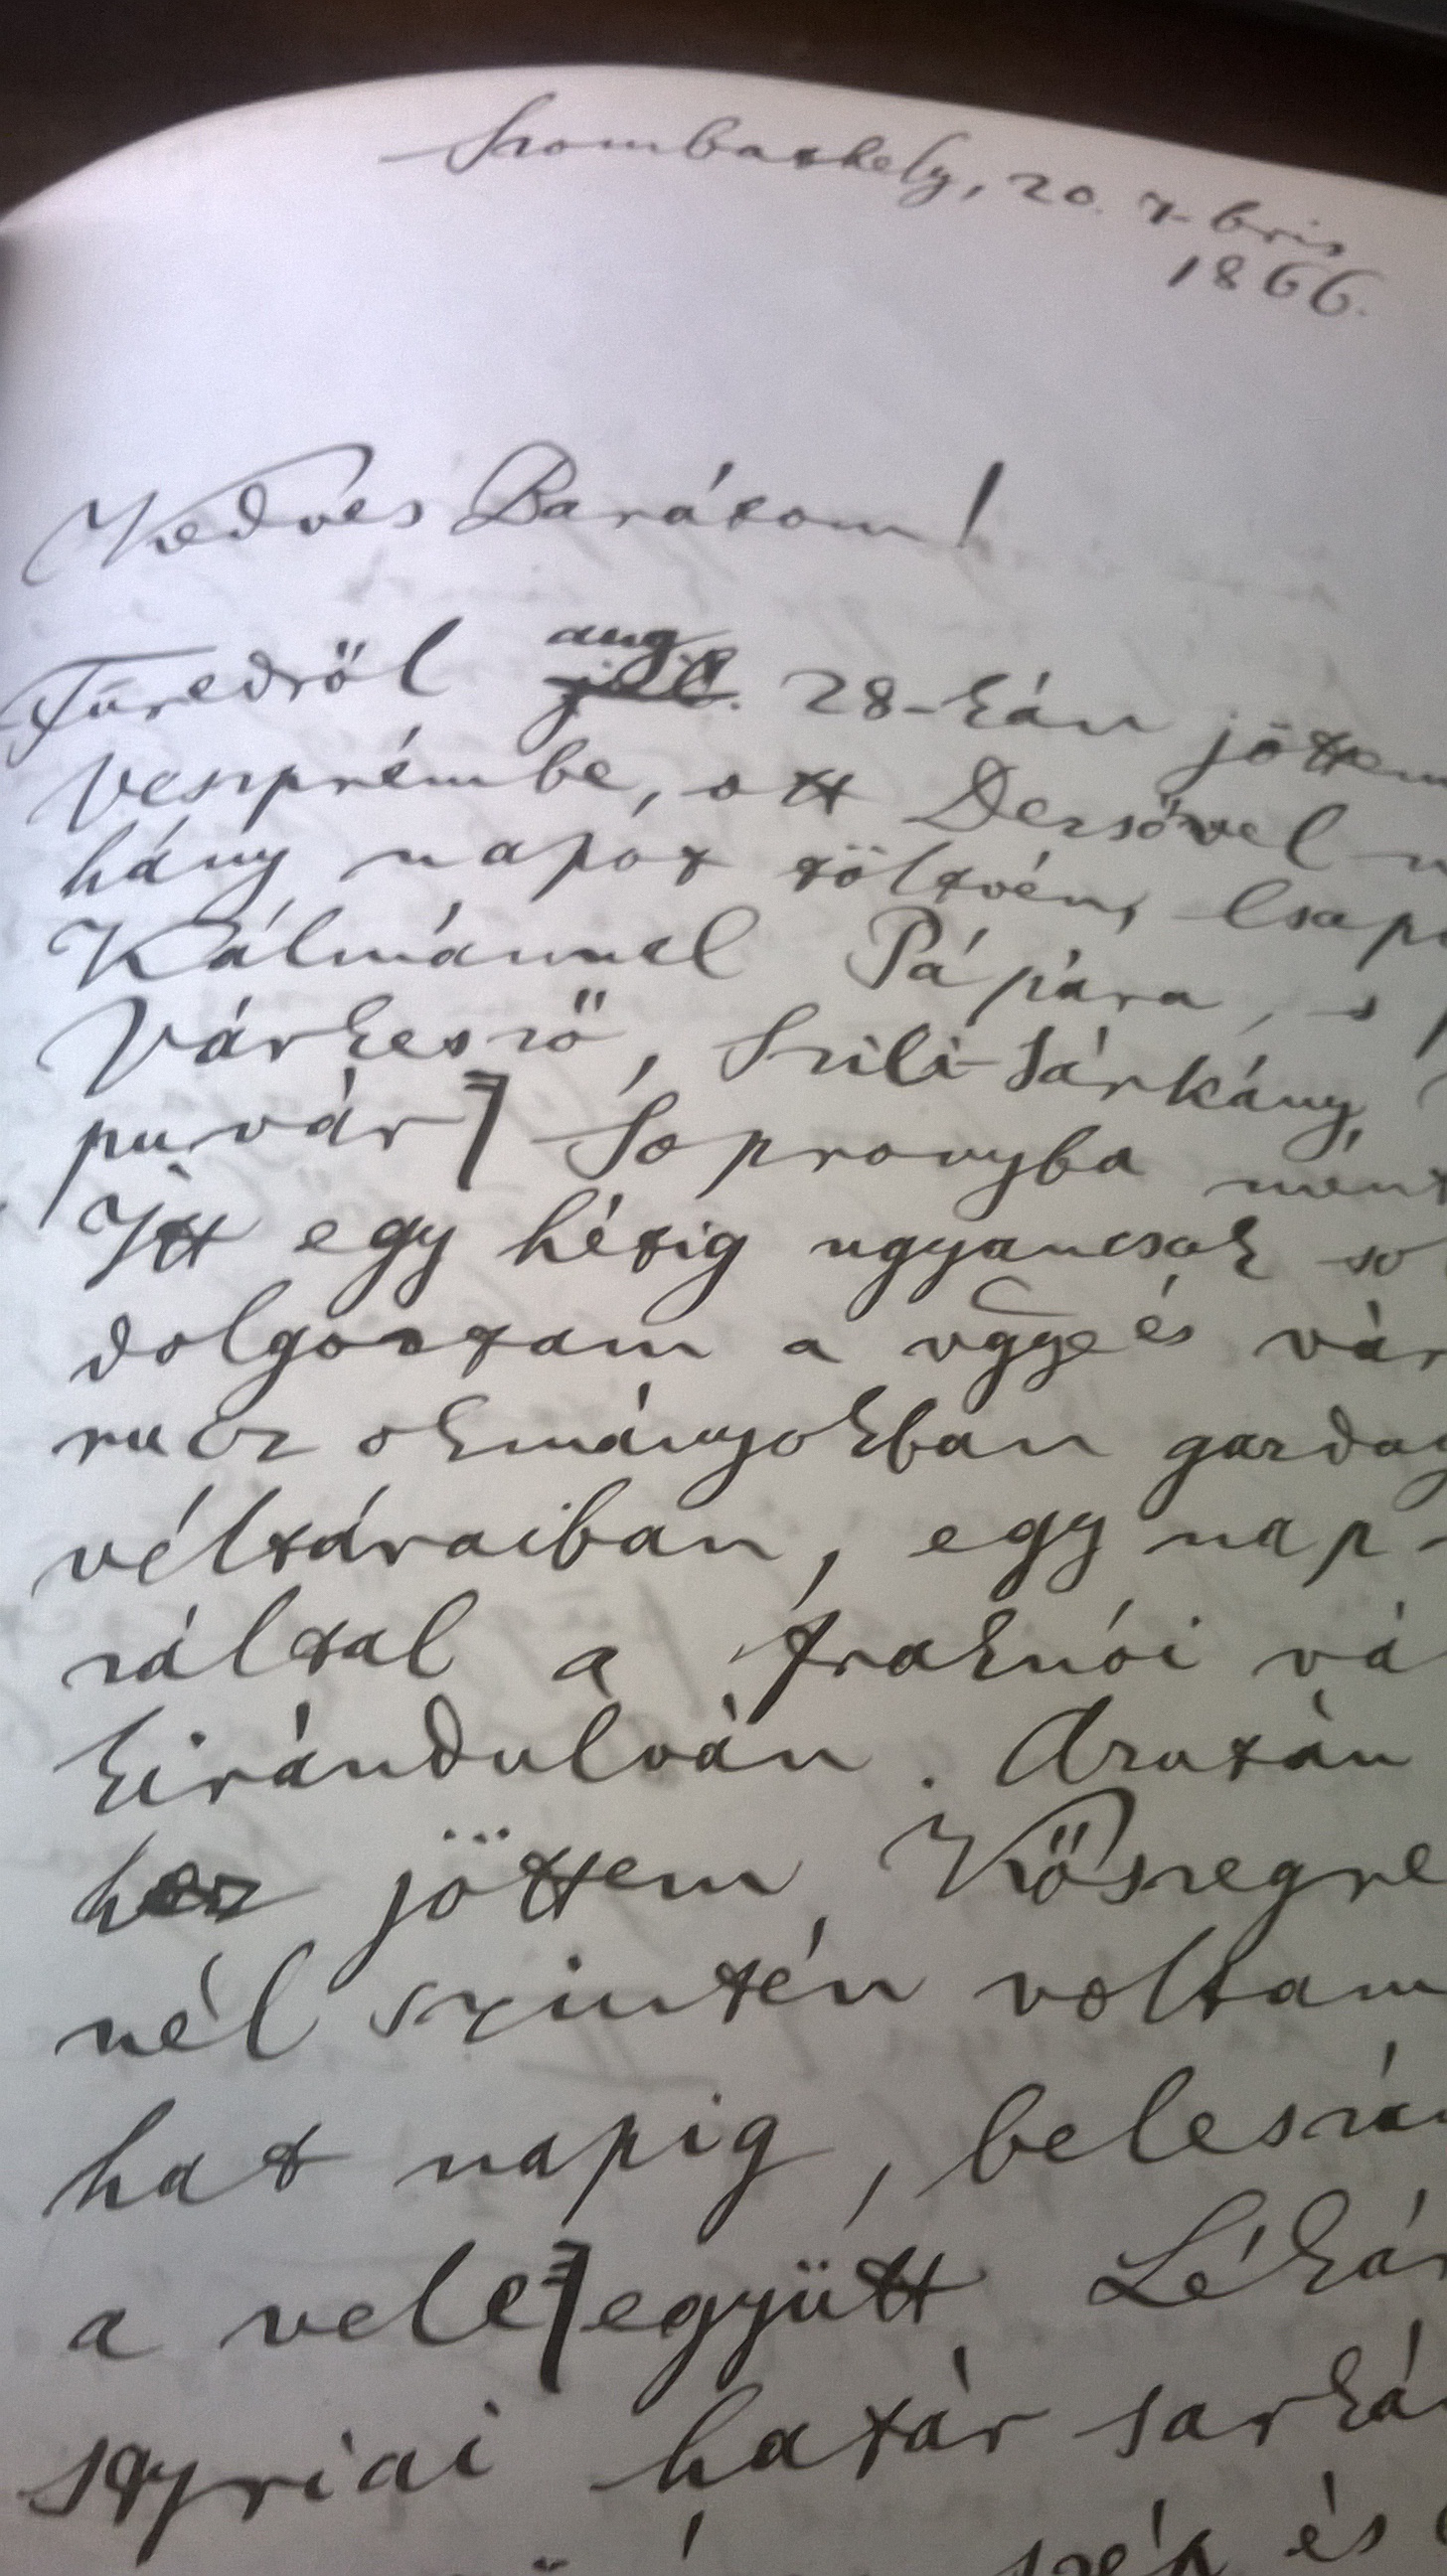 Szombathely, 20. 7-bris
1866.
Kedves Barátom!
aug
Füredről júl. 28-kán jöttem
Veszprémbe, ott Dezsővel n
hány napot töltvén, Csap
Kálmánnal Pápára, s
Várkesző, Szili-Sárkány,
puvár] Sopronyba ment
Itt egy hétig ugyancsak so
dolgoztam a vgye és vár
rucz okmányokban gazdag
véltáraiban, egy nap
ráltal a fraknói vá
kirándulván. Azután
hez jöttem, Kőszegre
nél szintén voltam
hat napig, beleszá
a vele] együtt Léká
styriai határ sarká
szép és